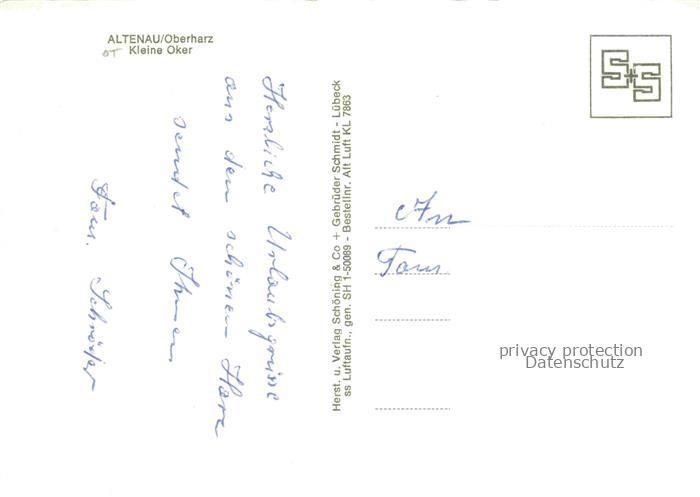 ALTENAU/Oberharz
Kleine Oker
Herzliche Urlaubsgrüsse
aus dem schönen Harz
sendet Ihnen
Fam. Schröder
Herst. u. Verlag Schöning & Co + Gebrüder Schmidt - Lübeck
ss Luftaufn., gen. SH 1-50089 - Bestellnr. Alt Luft KL 7863
S+S
An
Fam.
privacy protection
Datenschutz